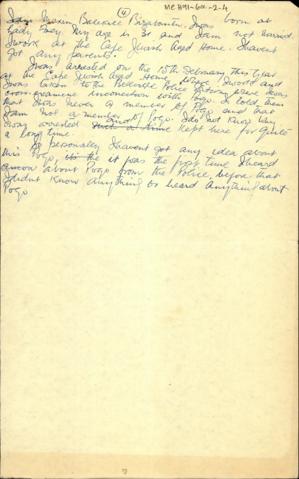 (4) MCH91-60-2-4
Boxing Balewee I was born at
Lady Grey My age is 31 and I am not married
I work at the Cape Jewish Aged Home. I havent
Got any parents.
I was arrested on the 15th February this year
at the Cape Jewish Aged Home where I work and
I was taken to the Bellville Police Station, where then
cross examine in connection with Pogo. I told them
that I was never a member of Pogo and that
I am not a member of Pogo. I do not know why
I was arrested and kept here for quite
a long time.
I personally I havent got any idea about
this Pogo, it was the first time I heard
about Pogo from the Police, before that
I didnt know anything or heard anything about
Pogo